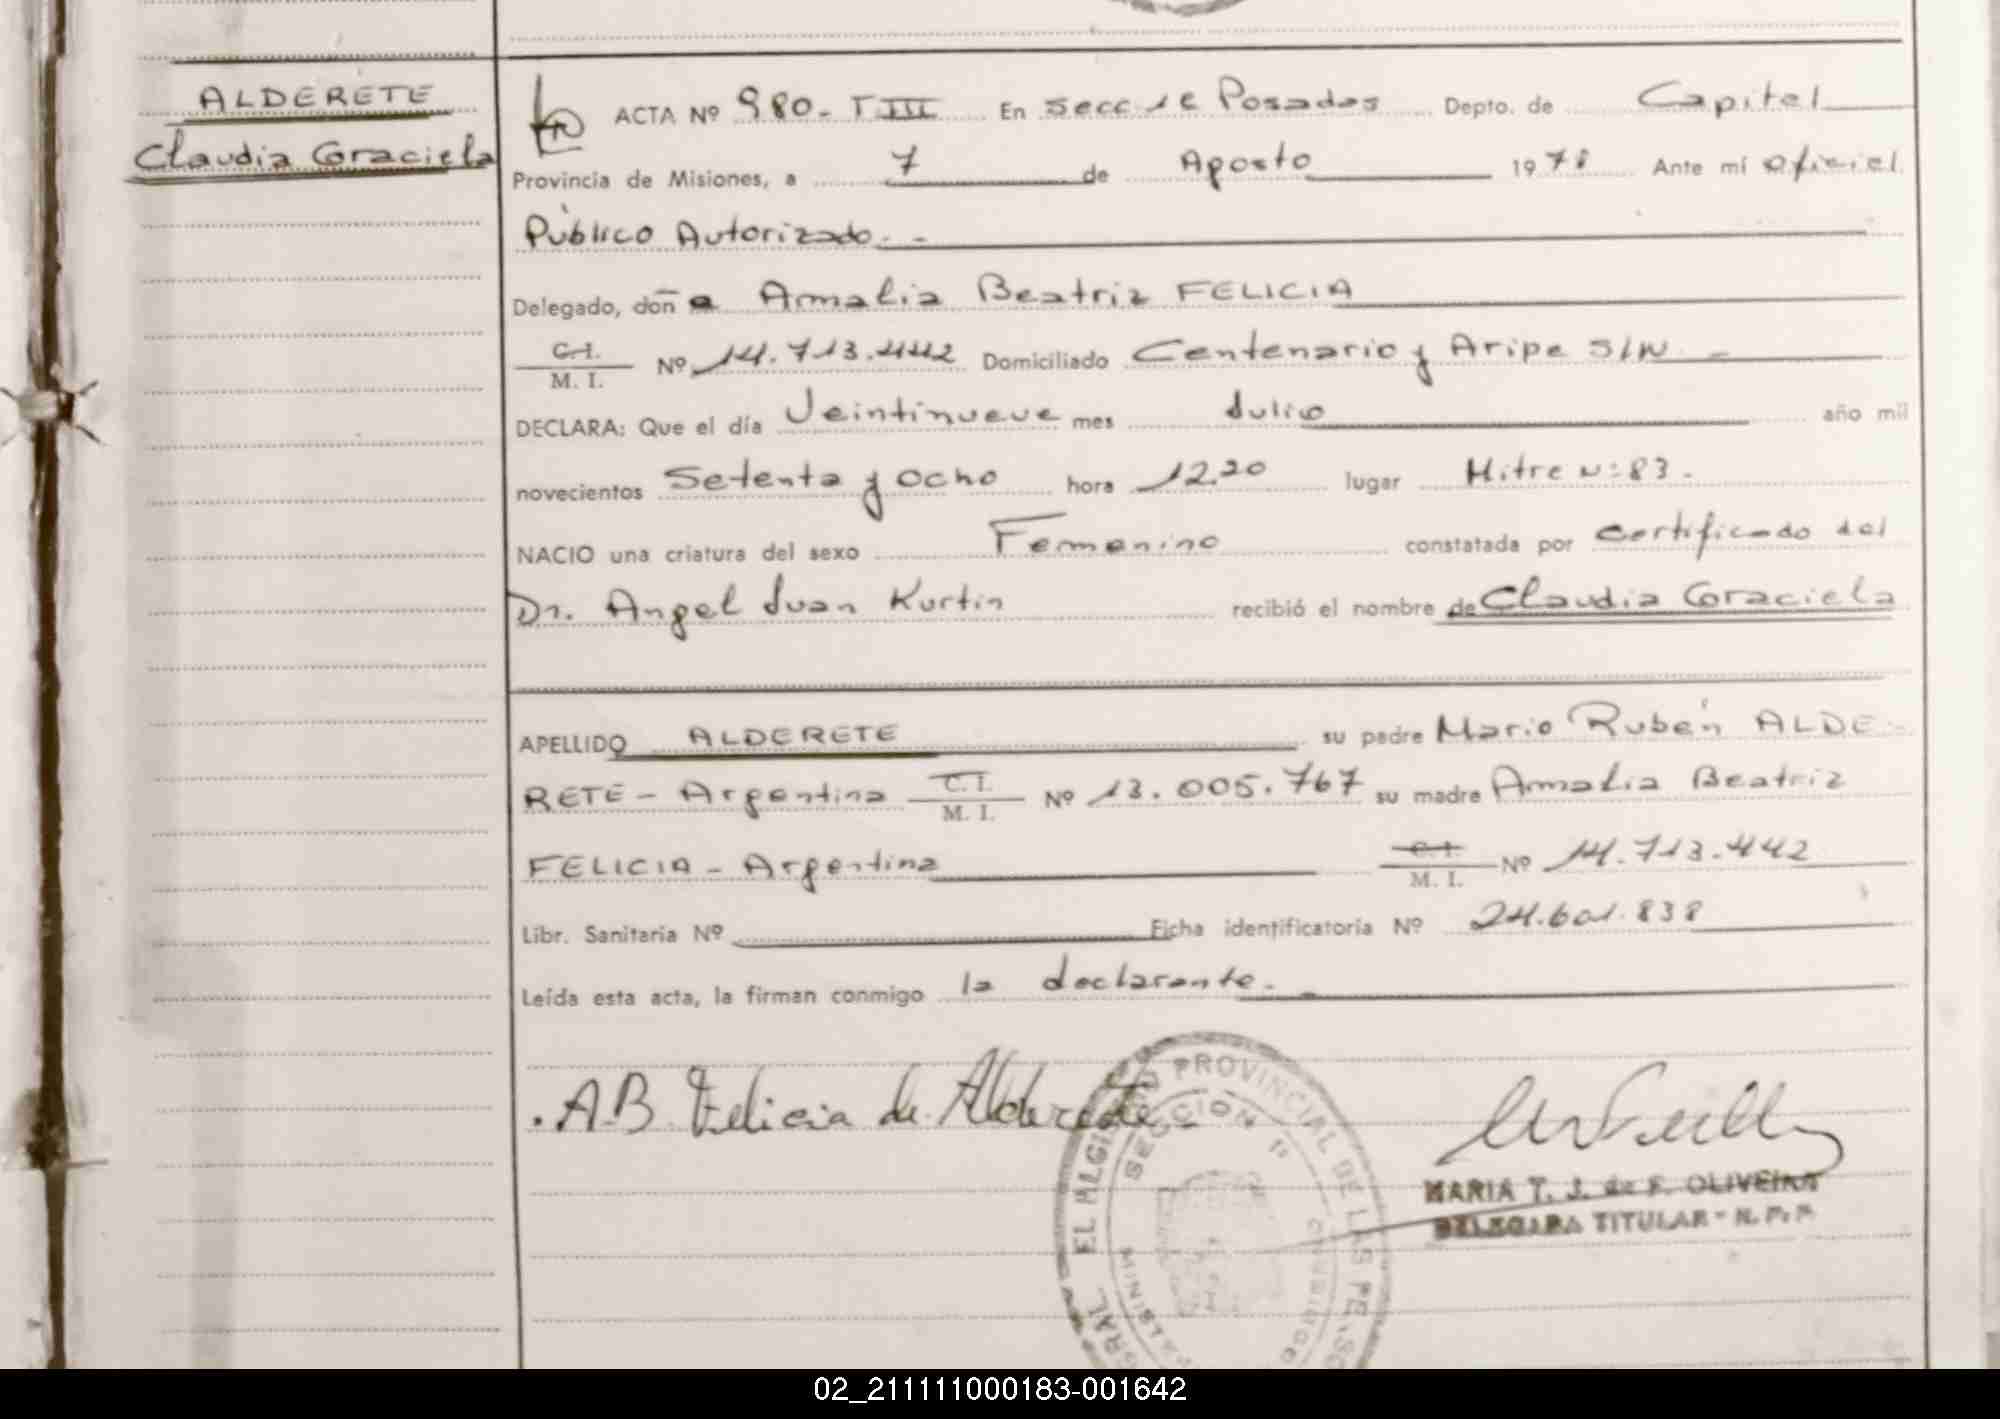 ALDERETE
Claudia Graciela
ACTA Nº 980 - T III En Secc 1ª Posadas Depto. de Capital
Provincia de Misiones, a 7 de Agosto 1978 Ante mí Oficial
Público Autorizado. -
Delegado, doña Amalia Beatriz FELICIA
C.I. / M. I. Nº 14.713.442 Domiciliado Centenario y Aripe S/N -
DECLARA: Que el día Veintinueve mes Julio año mil
novecientos Setenta y Ocho hora 12.20 lugar Mitre Nº 83.
NACIO una criatura del sexo Femenino constatada por certificado del
Dr. Angel Juan Kurtin recibió el nombre de Claudia Graciela
APELLIDO ALDERETE su padre Mario Rubén ALDE-
RETE - Argentina C.I. / M. I. Nº 13.005.767 su madre Amalia Beatriz
FELICIA - Argentina C.I. / M. I. Nº 14.713.442
Libr. Sanitaria Nº Ficha identificatoria Nº 24.601.838
Leída esta acta, la firman conmigo la declarante. -
A.B. Felicia de Alderete
PROVINCIAL DE LAS PE
SECCION 1º
MARIA T. J. de F. OLIVEIRA
DELEGADA TITULAR - R. P. P.
02_211111000183-001642